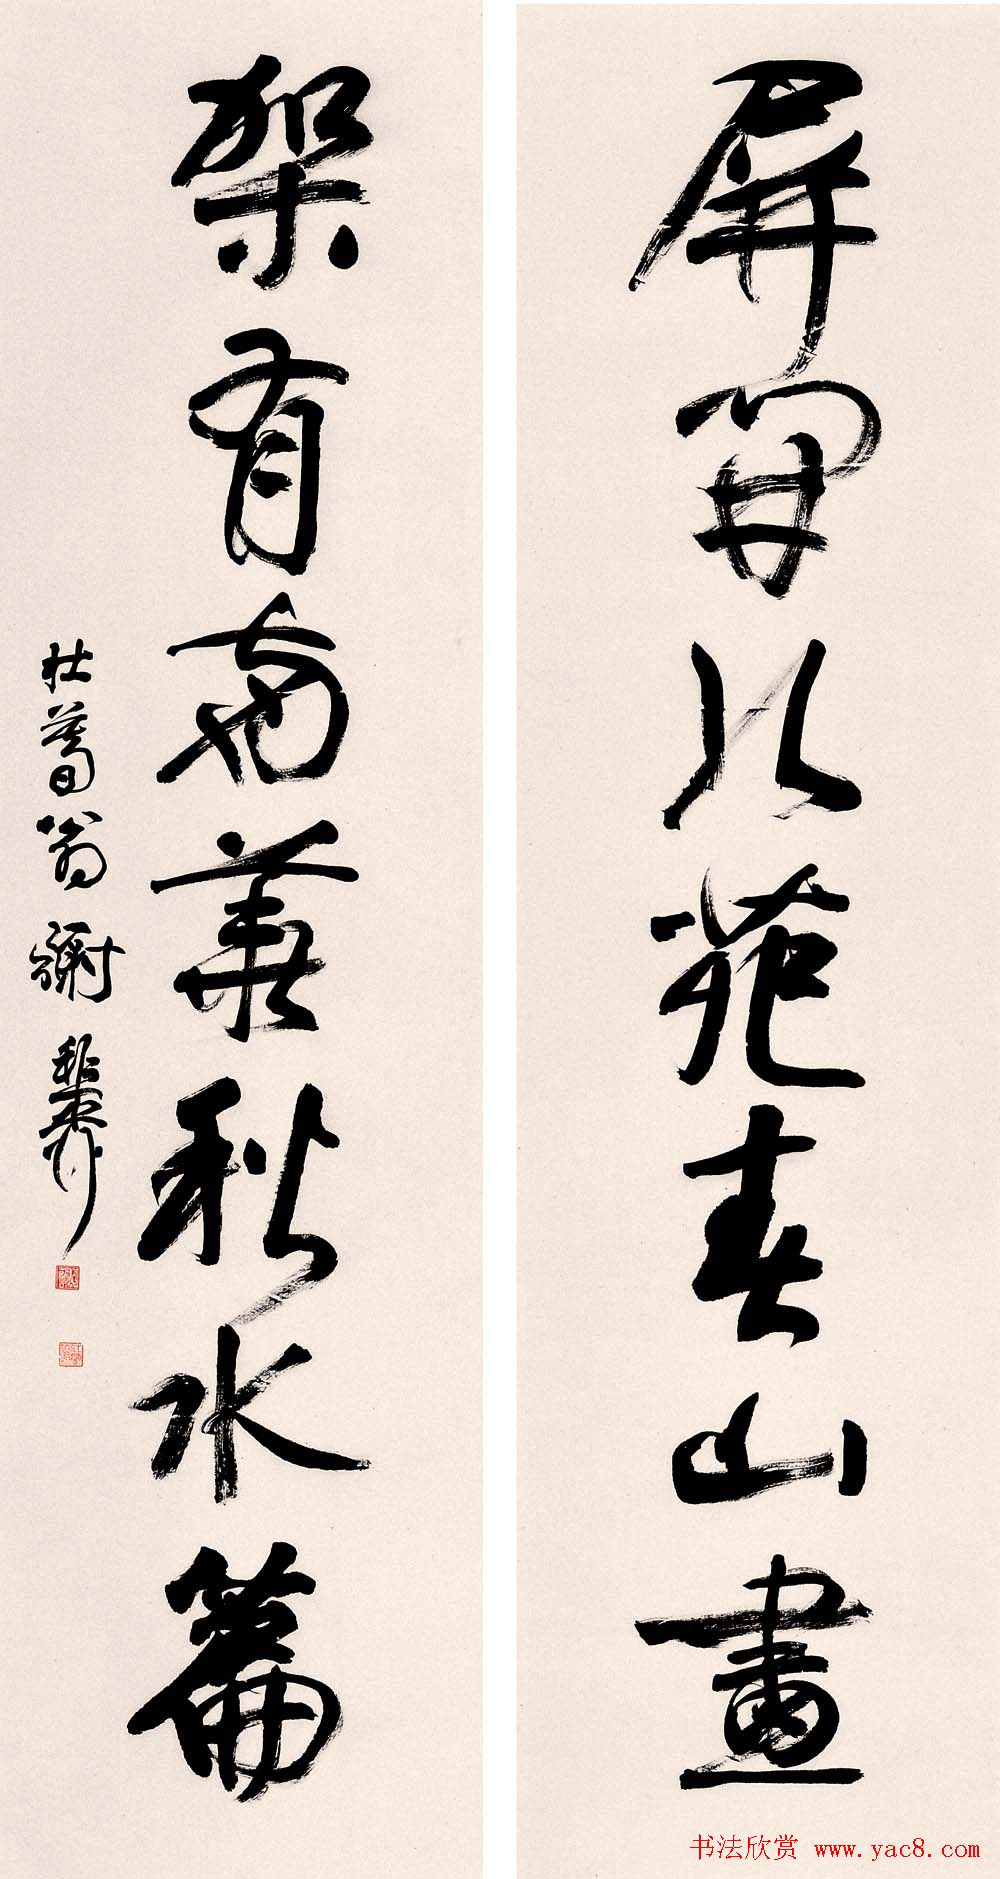 屏開北苑春山畫
架有南華秋水篇
壯暮翁謝稚柳
书法欣赏 www.yac8.com